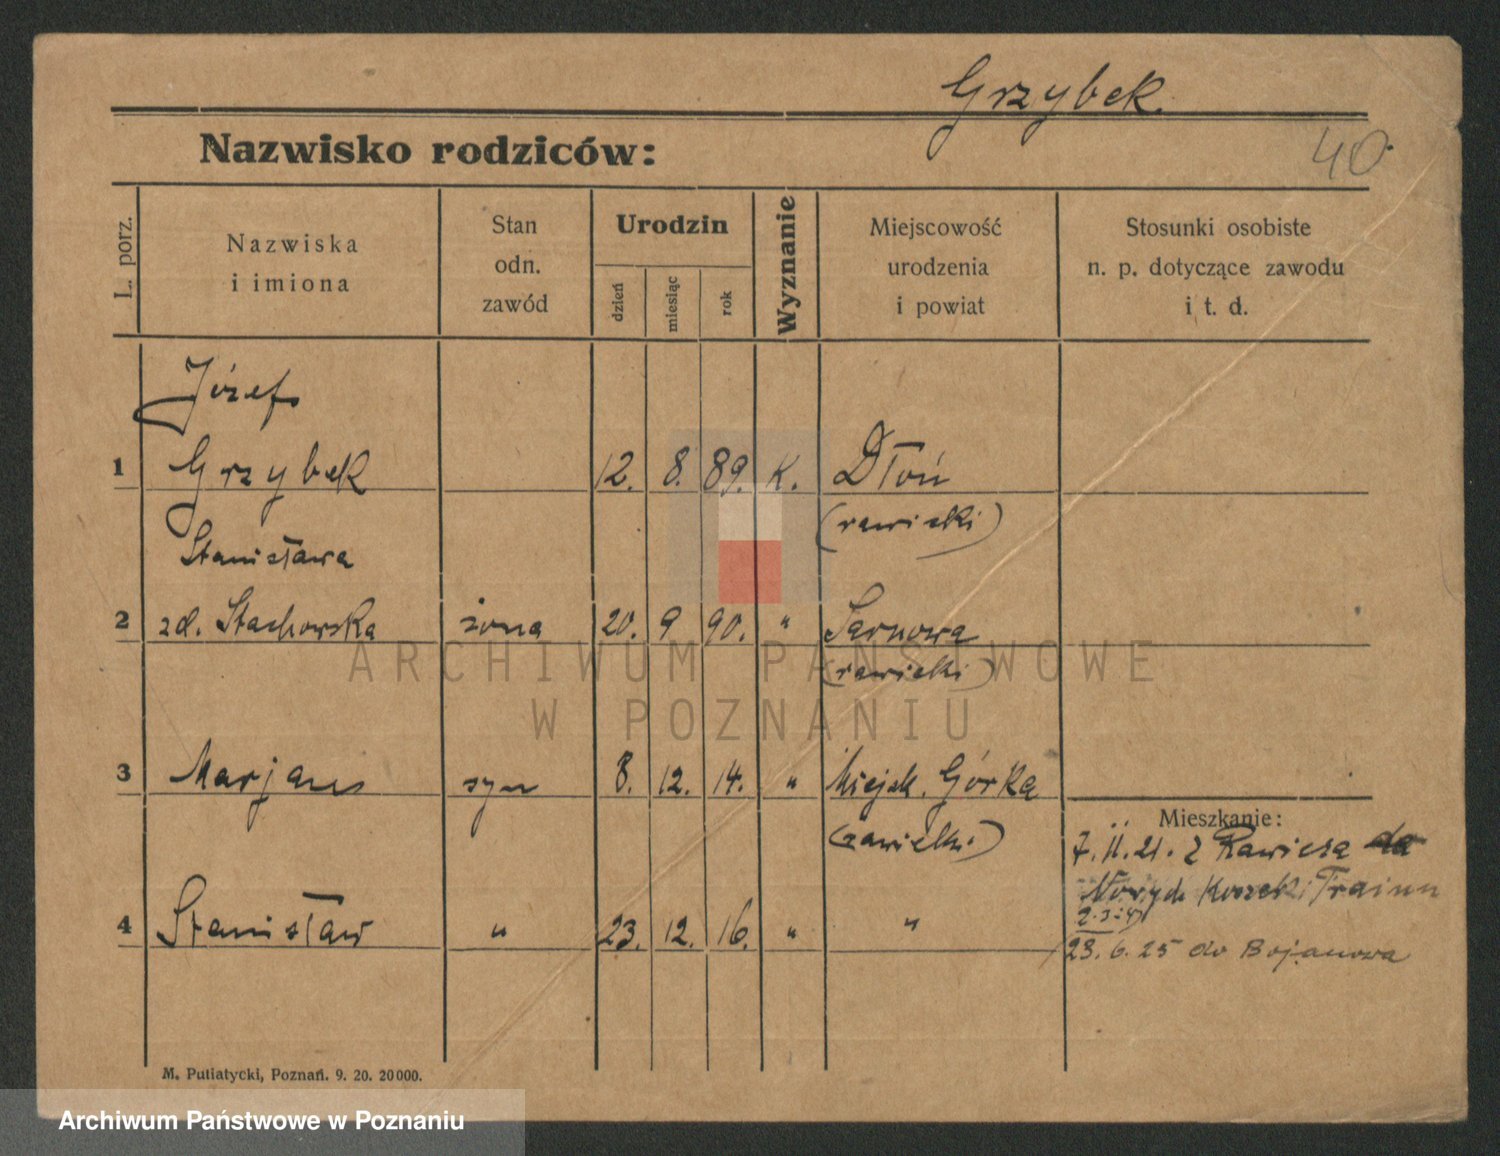 Grzybek.
Nazwisko rodziców:
40.
L. porz.
Nazwiska
i imiona
Stan
odn.
zawód
Urodzin
dzień
miesiąc
rok
Wyznanie
Miejscowość
urodzenia
i powiat
Stosunki osobiste
n. p. dotyczące zawodu
i t. d.
Józef
1 Grzybek 12. 8. 89. K. Dłoń
(rawicki)
Stanisława
2 zd. Stachowska żona 20. 9 90. " Sarnowa
(rawicki)
ARCHIWUM PAŃSTWOWE
W POZNANIU
3 Marjan syn 8. 12. 14. " Miejsk. Górka
(rawicki)
Mieszkanie:
7. II. 21. z Rawicza
4 Stanisław " 23. 12. 16. " "
23. 6. 25 do Bojanowa
M. Putiatycki, Poznań. 9. 20. 20000.
Archiwum Państwowe w Poznaniu